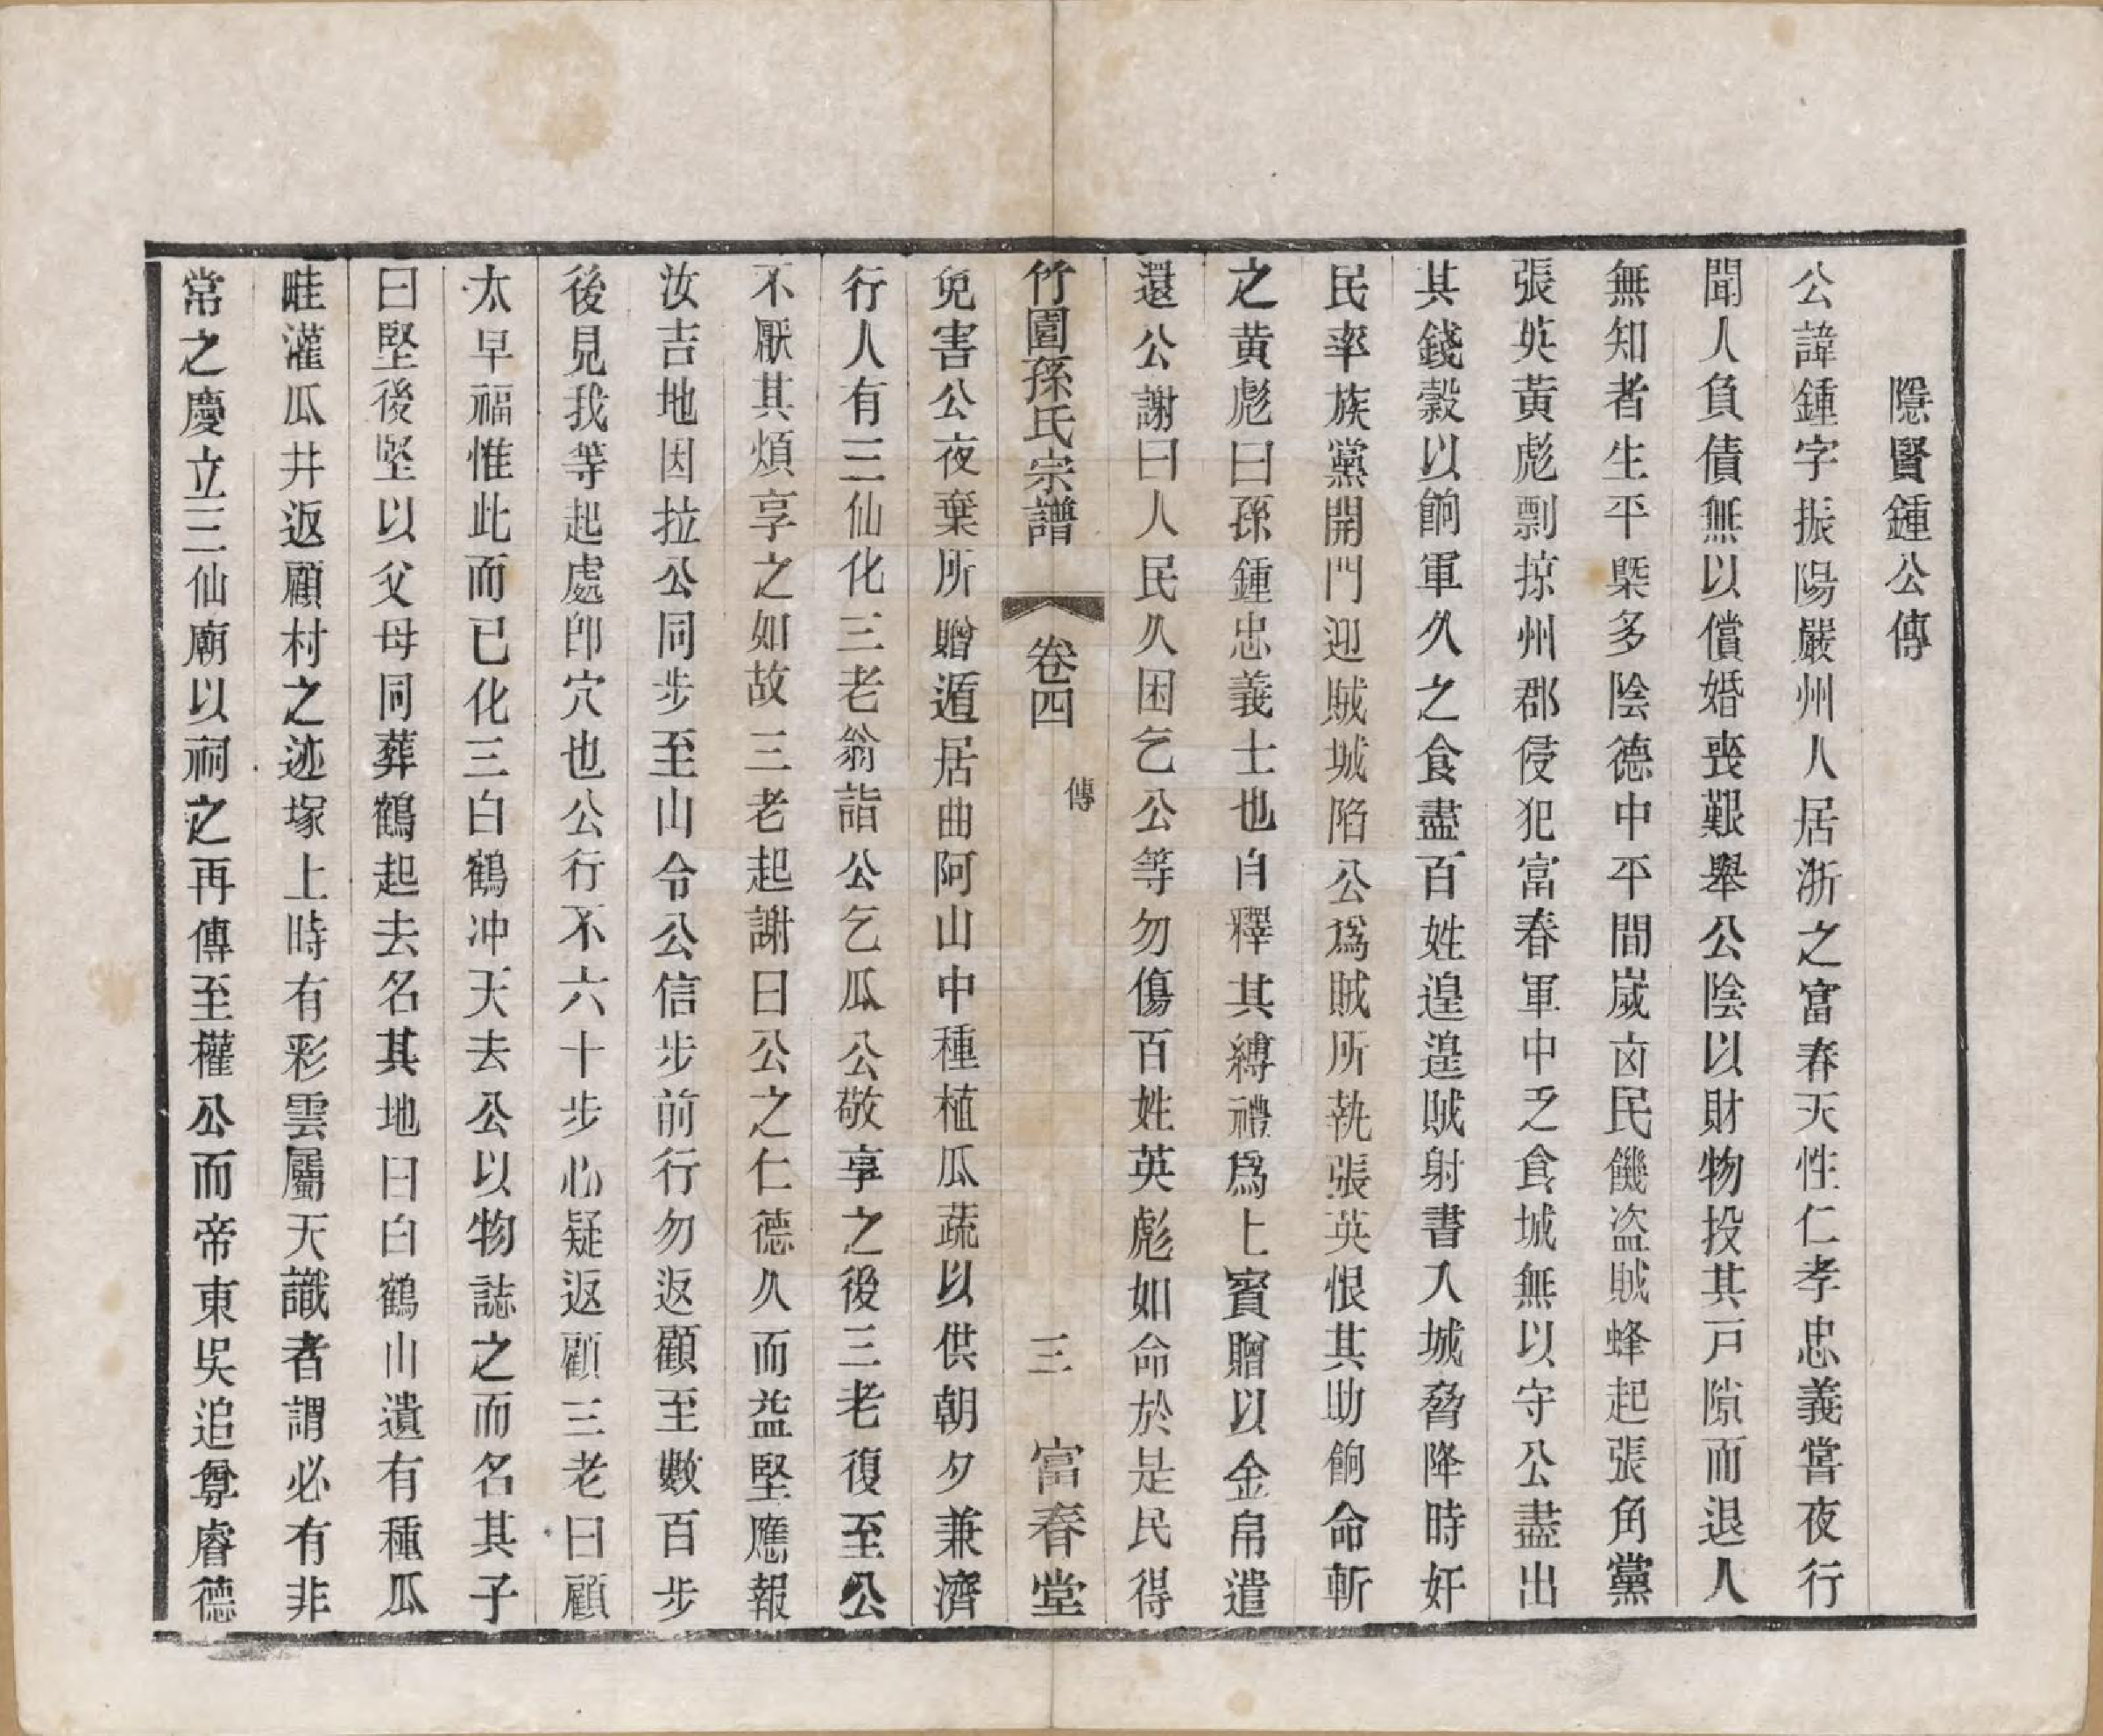 隱賢鍾公傳
公諱鍾字振陽嚴州人居浙之富春天性仁孝忠義嘗夜行
聞人負債無以償婚喪艱舉公陰以財物投其戸隙而退人
無知者生平槩多陰德中平間嵗凶民饑盜賊蜂起張角黨
張英黃彪剽掠州郡侵犯富春軍中乏食城無以守公盡出
其錢穀以餉軍久之食盡百姓遑遑賊射書入城脅降時奸
民率族黨開門迎賊城陷公爲賊所執張英恨其助餉命斬
之黄彪曰孫鍾忠義士也自釋其縛禮爲上賓贈以金帛遣
還公謝曰人民久困乞公等勿傷百姓英彪如命於是民得
竹園孫氏宗譜 卷四 傳 三 富春堂
免害公夜棄所贈遁居曲阿山中種植瓜蔬以供朝夕兼濟
行人有三仙化三老翁詣公乞瓜公敬享之後三老復至公
不厭其煩享之如故三老起謝曰公之仁德久而益堅應報
汝吉地因拉公同步至山令公信步前行勿返顧至數百步
後見我等起處卽穴也公行不六十步心疑返顧三老曰顧
太早福惟此而已化三白鶴冲天去公以物誌之而名其子
曰堅後堅以父母同葬鶴起去名其地曰白鶴山遺有種瓜
畦灌瓜井返顧村之迹塚上時有彩雲屬天識者謂必有非
常之慶立三仙廟以祠之再傳至權公而帝東吳追尊睿德